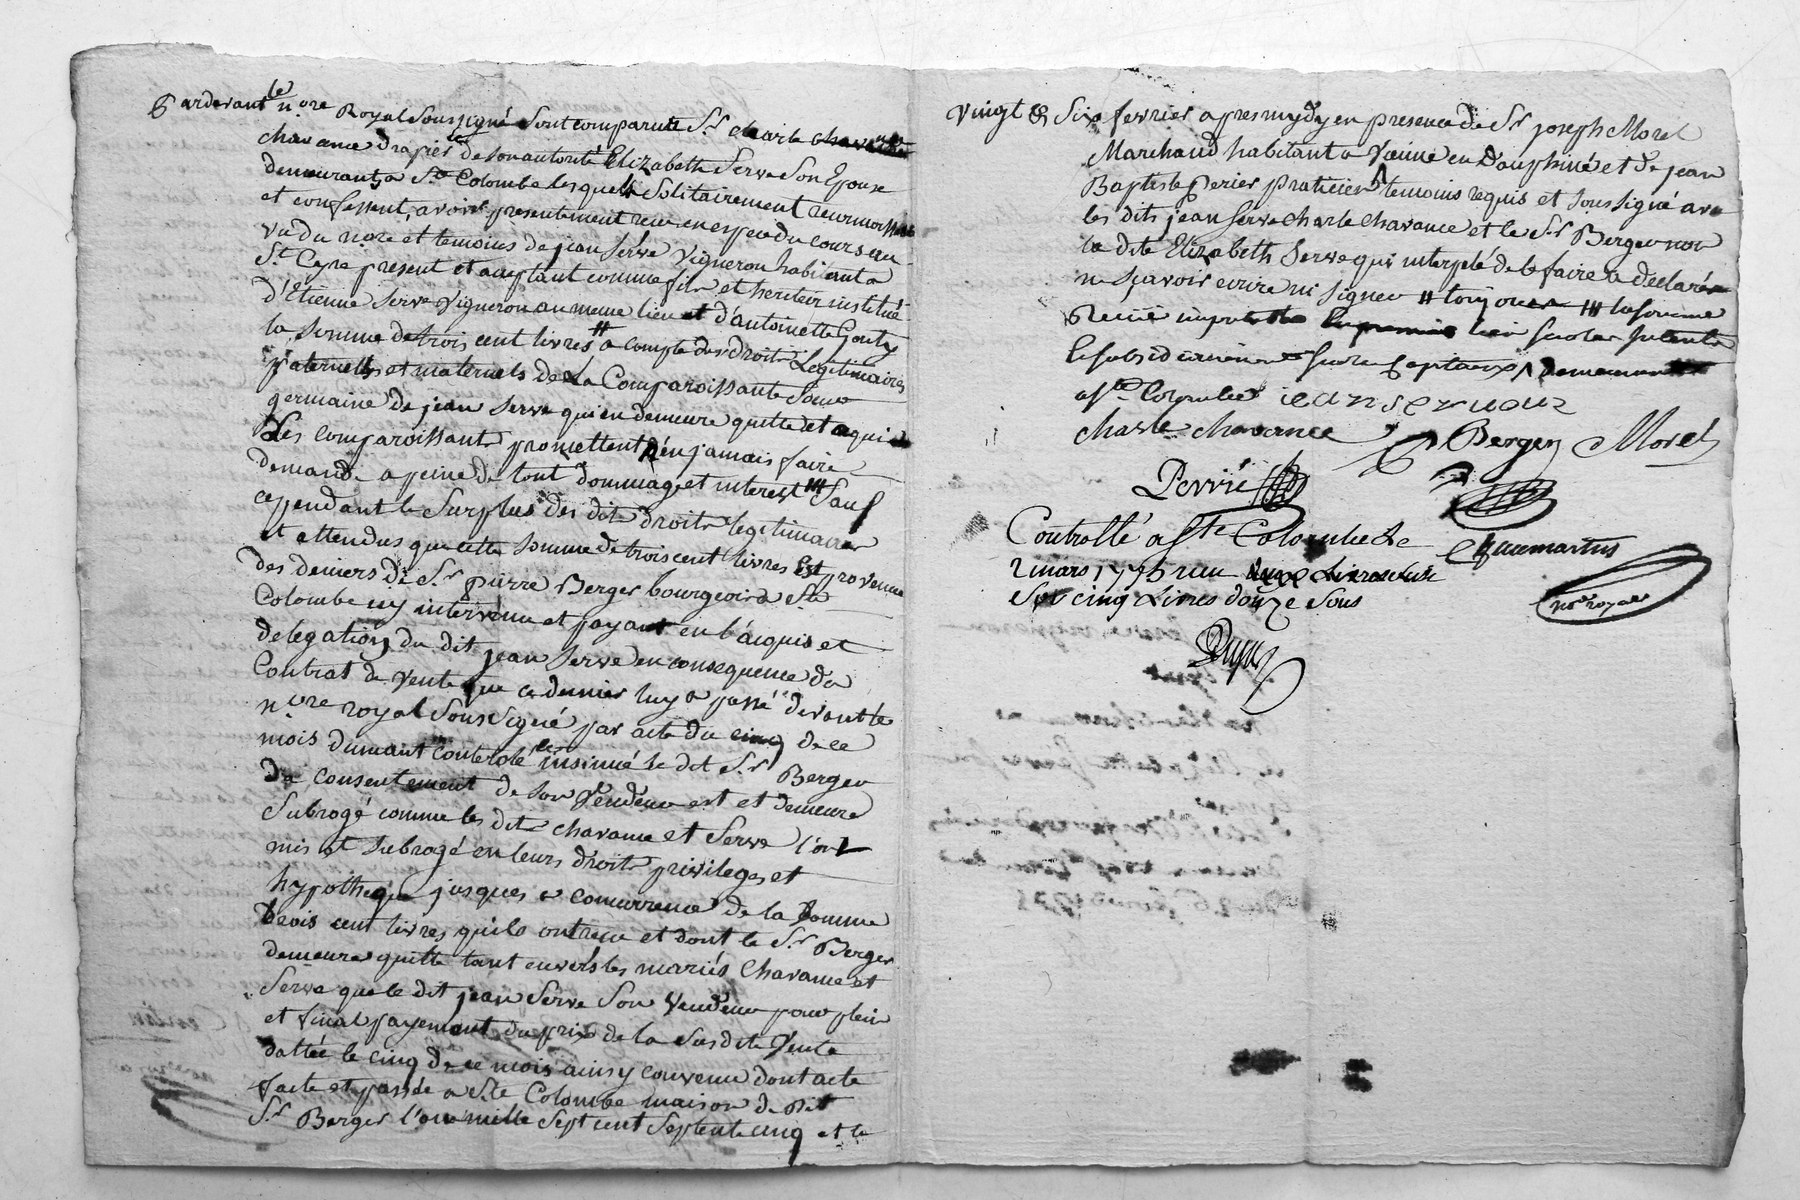 Pardevant le nore Royal Soussigné sont comparu Sr charle
chavance drapier de son autorité Elizabeth Serve Son Epouse
demeurants a Ste Colombe lesquels Solitairement
et confessent, avoir presentement recu en espece du cours au
vu du nore et temoins de jean Serve Vigneron habitant a
St Cyre present et acceptant comme fils et heritier institué
d'Etienne Serve Vigneron au meme lieu et d'antoinette Gouty
la somme de trois cent livres # a compte des droits Legitimaires
paternelles et maternels de La Comparoissante Soeur
germaine de jean Serve qui en demeure quitte et a qui
Les comparoissants promettent n'en jamais faire
demande a peine de tout dommage et interest # Sauf
cependant le Surplus des dits droits legitimaires
et attendus que cette somme de trois cent livres Est provenue
des deniers de Sr pierre Berger bourgeois de Ste
Colombe icy intervenu et payant en l'acquis et
delegation du dit jean Serve en consequence du
Contrat de Vente que ce dernier luy a passé devant le
nore royal Soussigné par acte du cinq de ce
mois dumant controlé insinué le dit Sr Berger
du consentement de son Vendeur est et demeure
Subrogé comme les dits chavance et Serve l'ont
mis et subrogé en leurs droits privileges et
hypotheque jusques a concurrence de la somme
trois cent livres qu'ils ont recu et dont le Sr Berger
demeure quitte tant envers les mariés Chavance et
Serve que le dit jean Serve Son Vendeur pour plein
et final payement du prix de la Susdite Vente
dattée le cinq de ce mois ainsy convenu dont acte
faite et passée a Ste Colombe maison du dit
Sr Berger l'an mille Sept cent Septente cinq et le
vingt & Six fevrier apres mydy en presence de Sr joseph Morel
Marchand habitant a Vienne en Dauphiné et de jean
Baptiste perier praticien temoins requis et soussigné avec
les dits jean Serve charle chavance et le Sr Berger non
la dite Elizabeth Serve qui interpelé de le faire a declaré
ne sçavoir ecrire ni signer # toujours # la somme
Recue
a Ste Colombe jean servaux
charle chavance Berger Morel
Perrié
Controllé a Ste Colombe le
2 mars 1775 recu
Soit cinq Livres douze Sous
nore royal